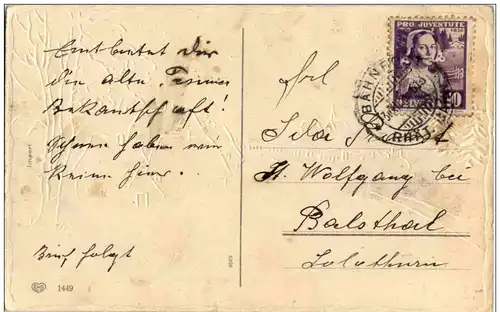 Entbietet dir
die alte
Bekantschaft!
haben wir
keine hier.
Brief folgt
Import
1449
Frl.
Ida
St. Wolfgang bei
Balsthal
Solothurn
PRO JUVENTUTE
HELVETIA
10
BAHNPOST